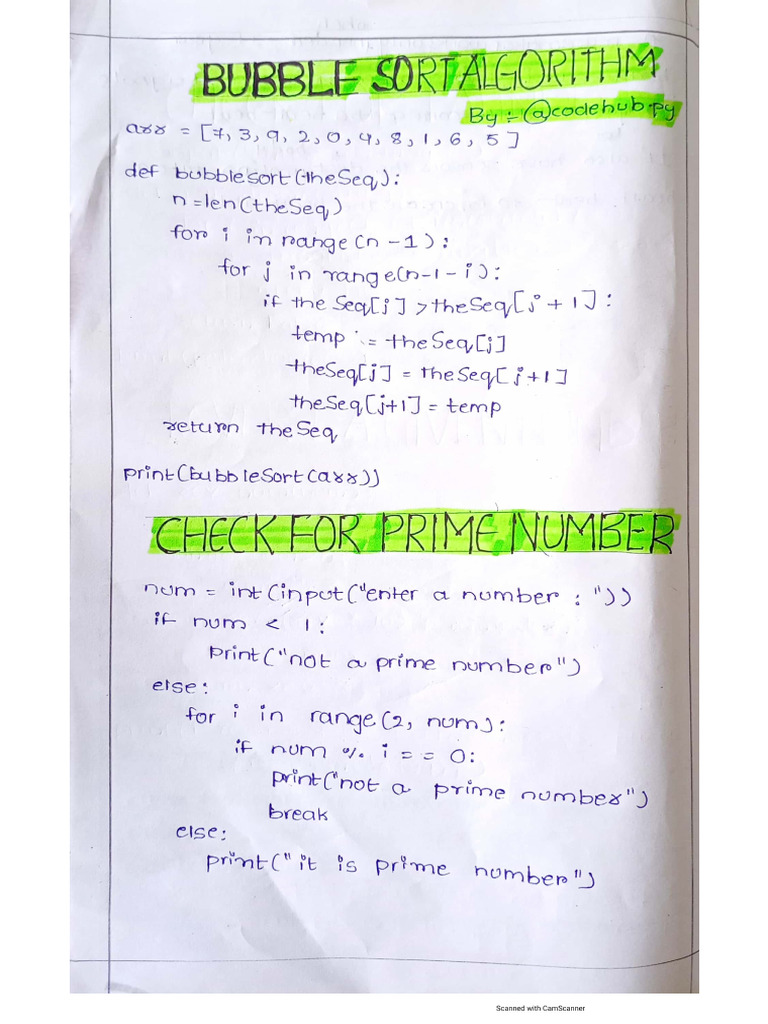 BUBBLE SORT ALGORITHM
By :- @codehub.py
arr = [7, 3, 9, 2, 0, 4, 8, 1, 6, 5]
def bubblesort(theSeq):
n=len(theSeq)
for i in range(n-1):
for j in range(n-1-i):
if the Seq[j] > theSeq[j + 1]:
temp = theSeq[j]
theSeq[j] = theSeq[j+1]
theSeq[j+1] = temp
return theSeq
print(bubbleSort(arr))
CHECK FOR PRIME NUMBER
num = int(input("enter a number : "))
if num < 1:
print("not a prime number")
else:
for i in range(2, num):
if num % i == 0:
print("not a prime number")
break
else:
print("it is prime number")
Scanned with CamScanner